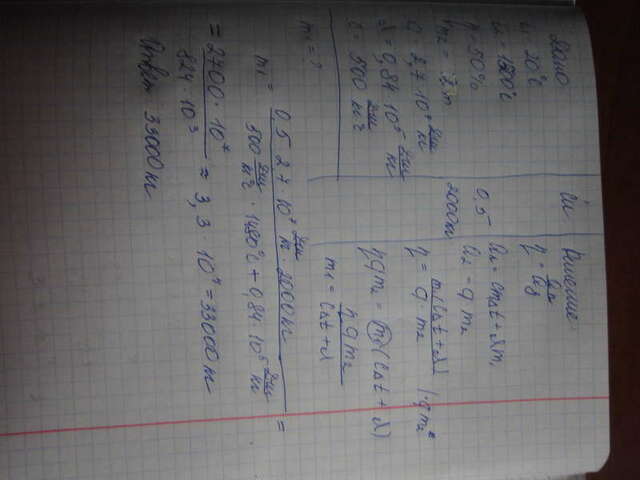 Дано
t₁ = 20°C
t₂ = 1500°C
η = 50%
m₂ = 2т
q = 2,7·10⁷ Дж/кг
λ = 0,84·10⁵ Дж/кг
c = 500 Дж/кг°C
m₁ = ?
Си
0,5
2000кг
Решение
η = Qп/Qз
Qп = cm₁Δt + λm₁
Qз = qm₂
η = m₁(cΔt + λ) / q·m₂ | ·qm₂
ηqm₂ = m₁(cΔt + λ)
m₁ = ηqm₂ / cΔt + λ
m₁ = 0,5·2,7·10⁷ Дж/кг · 2000кг / 500 Дж/кг°C · 1480°C + 0,84·10⁵ Дж/кг =
= 2700·10⁷ / 824·10³ = 3,3·10⁴ = 33000кг
Ответ: 33000кг